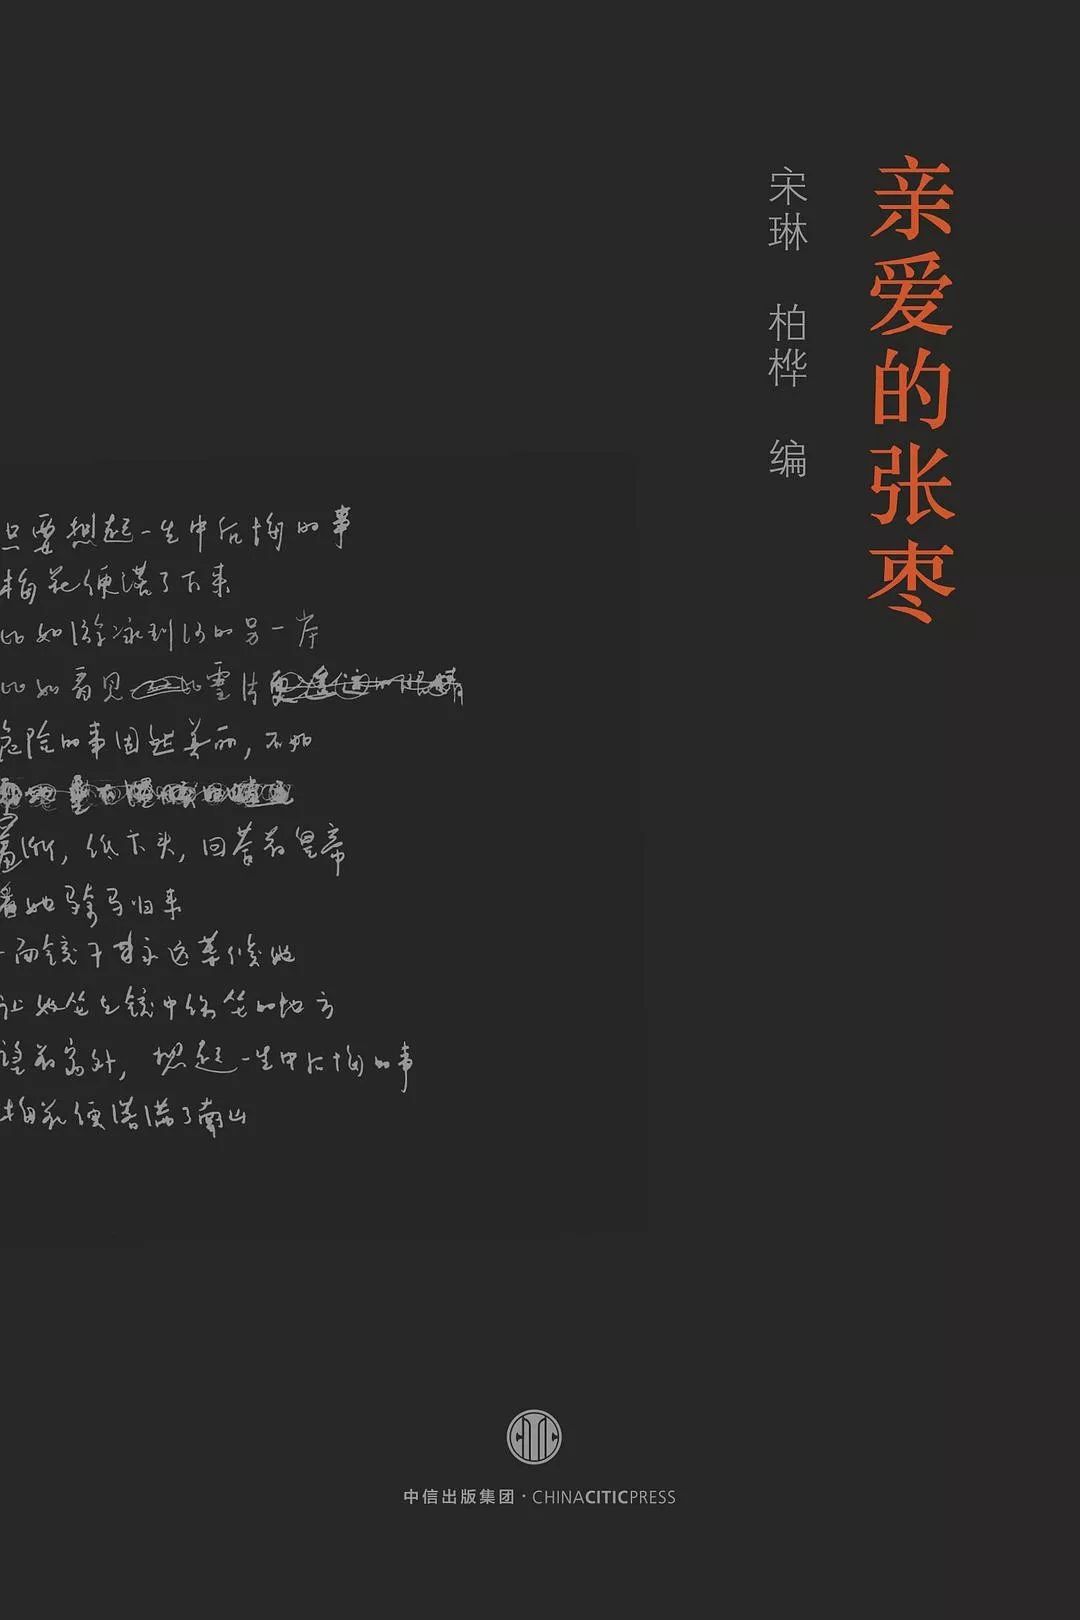 亲爱的张枣
宋琳 柏桦 编
只要想起一生中后悔的事
梅花便落了下来
比如游泳到河的另一岸
比如看见 比雪片
危险的事固然美丽，不如
羞惭，低下头，回答着皇帝
看她骑马归来
一面镜子永远等候她
让她坐在镜中你坐的地方
望着窗外，想起一生中后悔的事
梅花便落满了南山
中信出版集团·CHINACITICPRESS